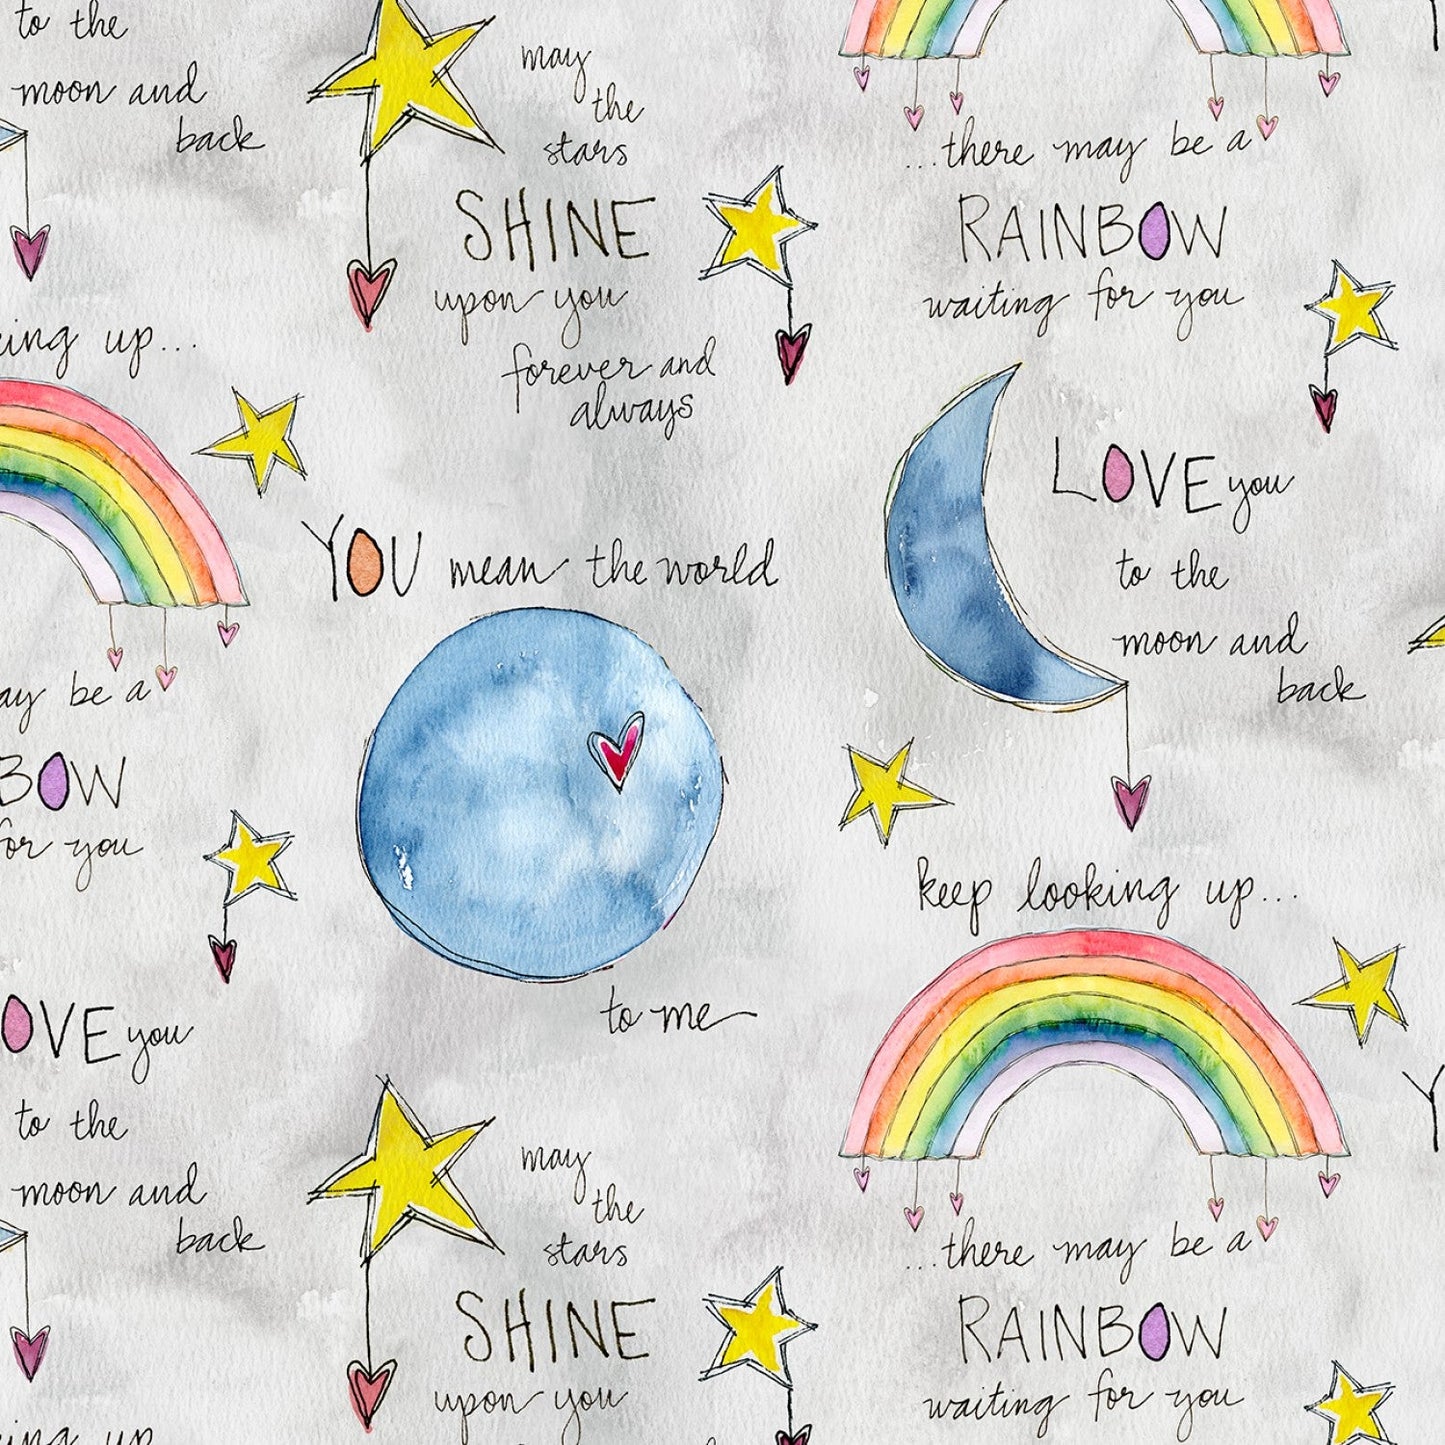 to the
moon and
back
may
the
stars
SHINE
upon you
forever and
always
...there may be a
RAINBOW
waiting for you
ing up...
may be a
BOW
for you
YOU mean the world
to me
LOVE you
to the
moon and
back
keep looking up...
...there may be a
RAINBOW
waiting for you
OVE you
to the
moon and
back
may
the
stars
SHINE
upon you